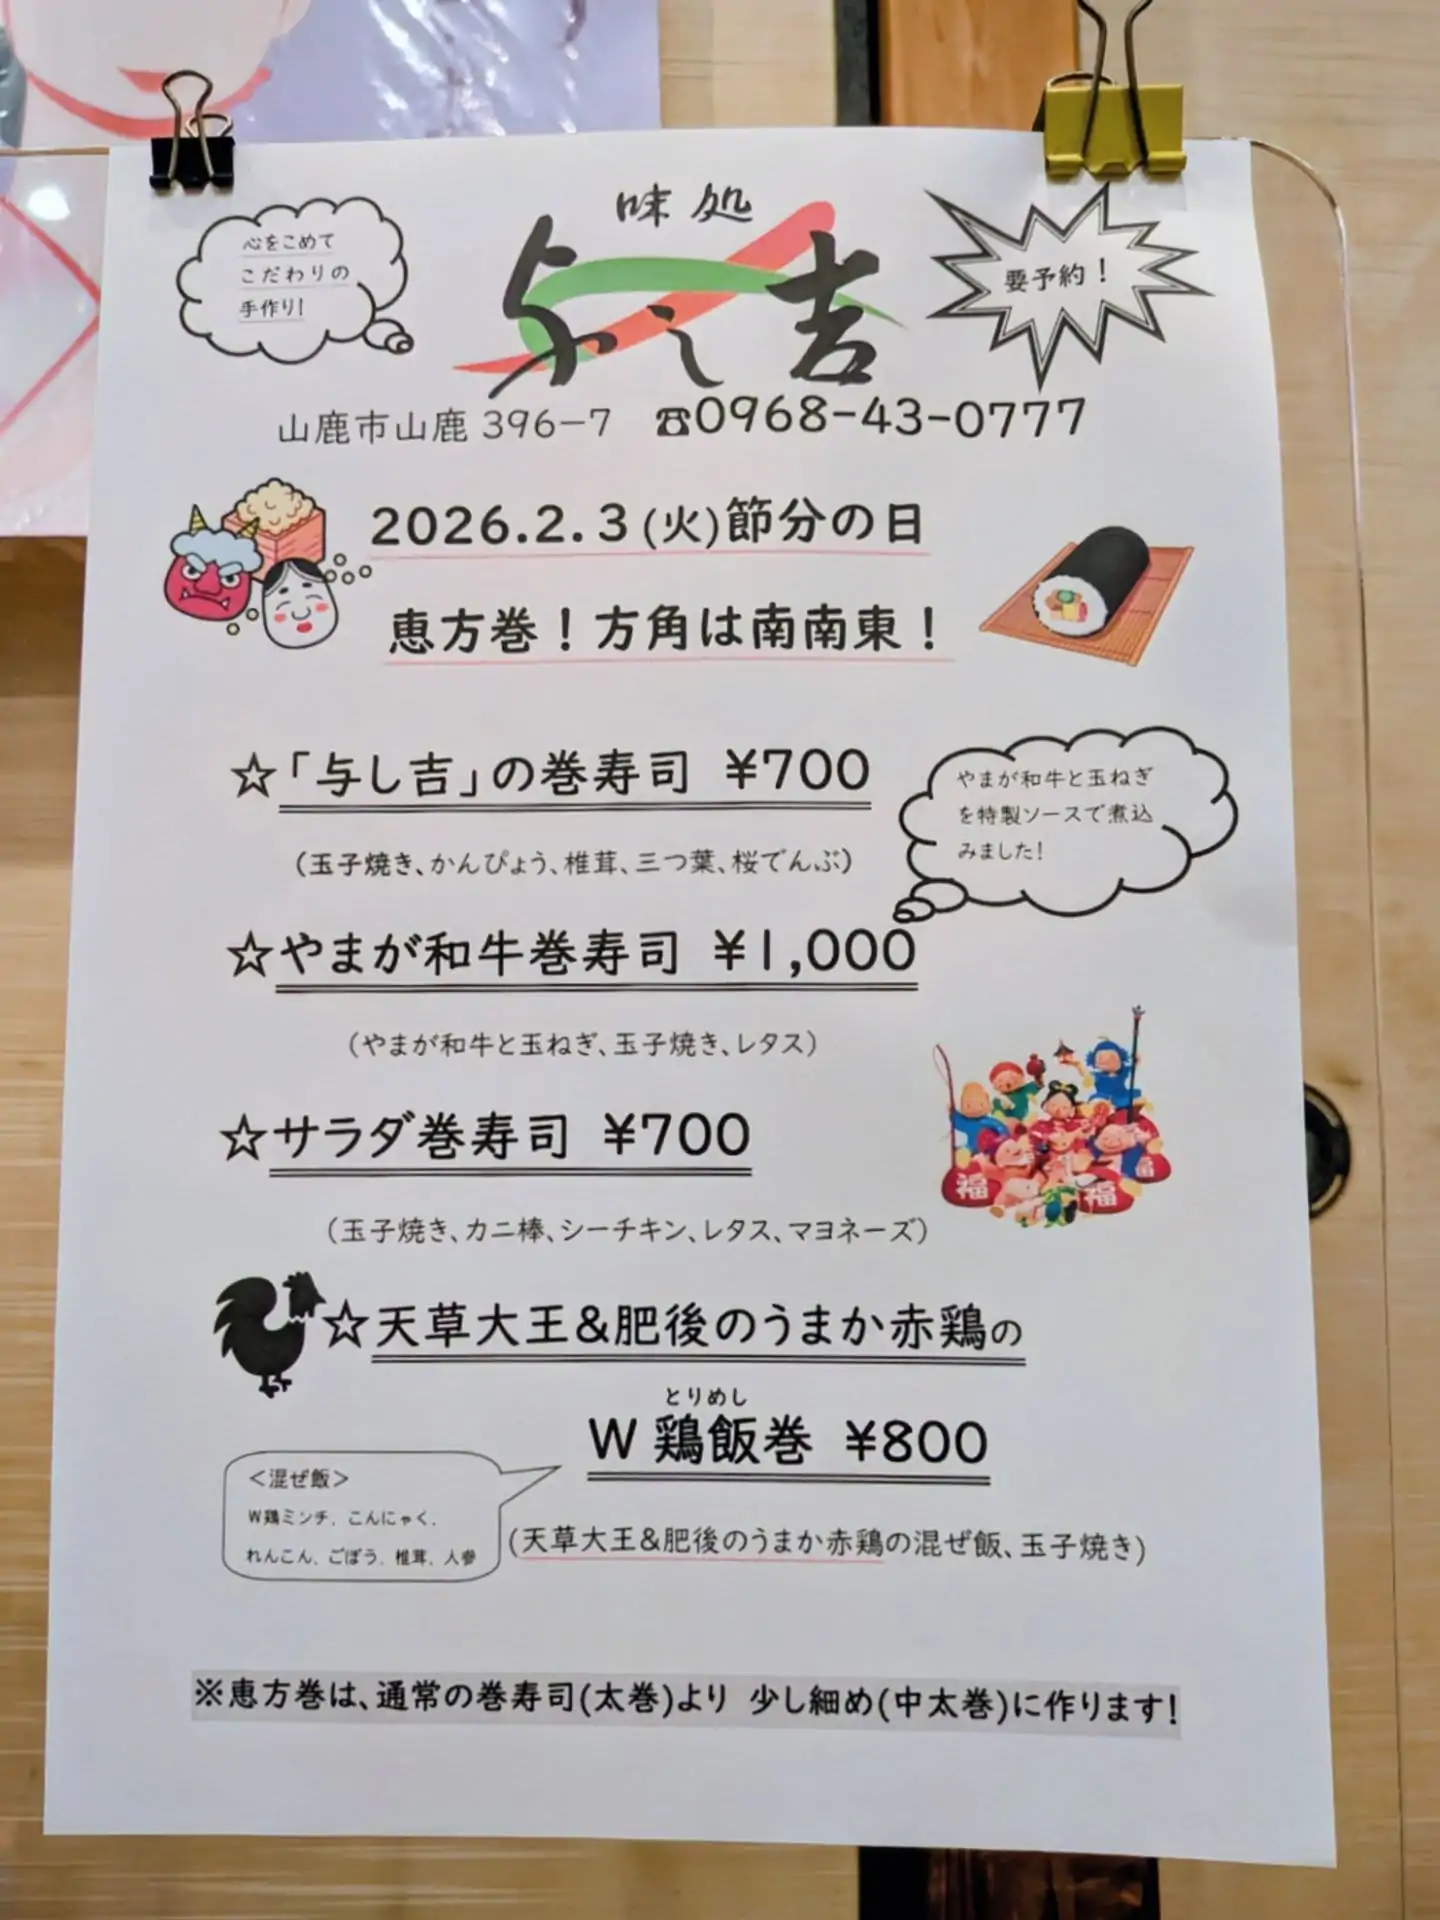 心をこめて
こだわりの
手作り!
味処
与し吉
要予約！
山鹿市山鹿 396−7 ☎0968-43-0777
2026.2.3(火)節分の日
恵方巻！方角は南南東！
☆「与し吉」の巻寿司 ¥700
(玉子焼き、かんぴょう、椎茸、三つ葉、桜でんぶ)
やまが和牛と玉ねぎ
を特製ソースで煮込
みました!
☆やまが和牛巻寿司 ¥1,000
(やまが和牛と玉ねぎ、玉子焼き、レタス)
☆サラダ巻寿司 ¥700
(玉子焼き、カニ棒、シーチキン、レタス、マヨネーズ)
福
福
福
☆天草大王&肥後のうまか赤鶏の
とりめし
W 鶏飯巻 ¥800
<混ぜ飯>
W鶏ミンチ、こんにゃく、
れんこん、ごぼう、椎茸、人参
(天草大王&肥後のうまか赤鶏の混ぜ飯、玉子焼き)
※恵方巻は、通常の巻寿司(太巻)より 少し細め(中太巻)に作ります!